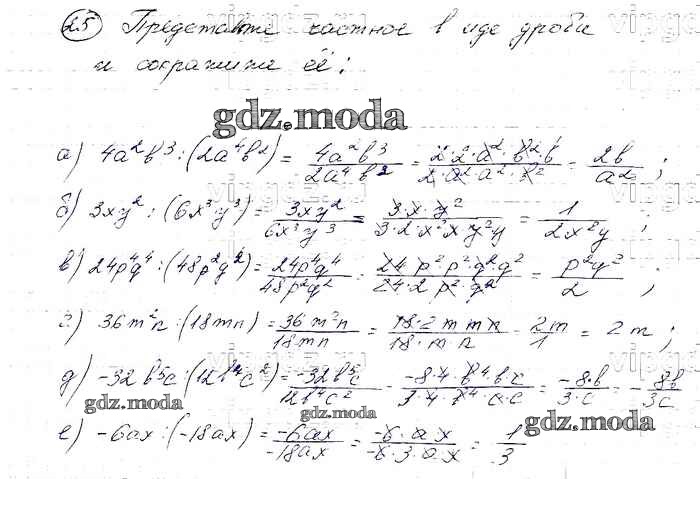 25 Представьте частное в виде дроби
и сократите её:
gdz.moda
а) 4a²b³ : (2a⁴b²) = 4a²b³/2a⁴b² = 2·2·a²·b²·b/2·a²·a²·b² = 2b/a² ;
б) 3xy² : (6x³y³) = 3xy²/6x³y³ = 3·x·y²/3·2·x²x y²y = 1/2x²y ;
в) 24p⁴q⁴ : (48p²q²) = 24p⁴q⁴/48p²q² = 24·p²p²·q²·q²/24·2·p²·q² = p²q²/2 ;
г) 36m²n : (18mn) = 36m²n/18mn = 18·2 m m n/18·m n = 2m/1 = 2m ;
д) -32b⁵c : (12b⁴c²) = -32b⁵c/12b⁴c² = -8·4·b⁴·b·c/3·4·b⁴·c·c = -8·b/3·c = - 8b/3c
gdz.moda
gdz.moda
gdz.moda
е) -6ax : (-18ax) = -6ax/-18ax = -6·a·x/-6·3·a·x = 1/3